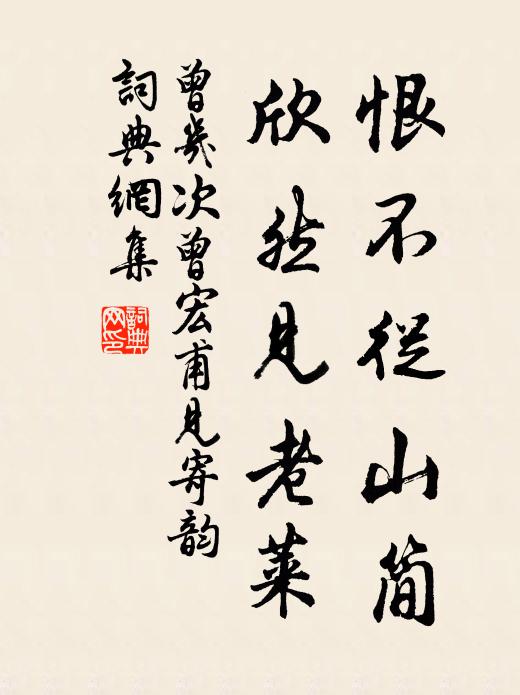 恨不從山簡
欣然見老萊
曾幾次曾宏甫見寄韵
詞典網集
詞典网印